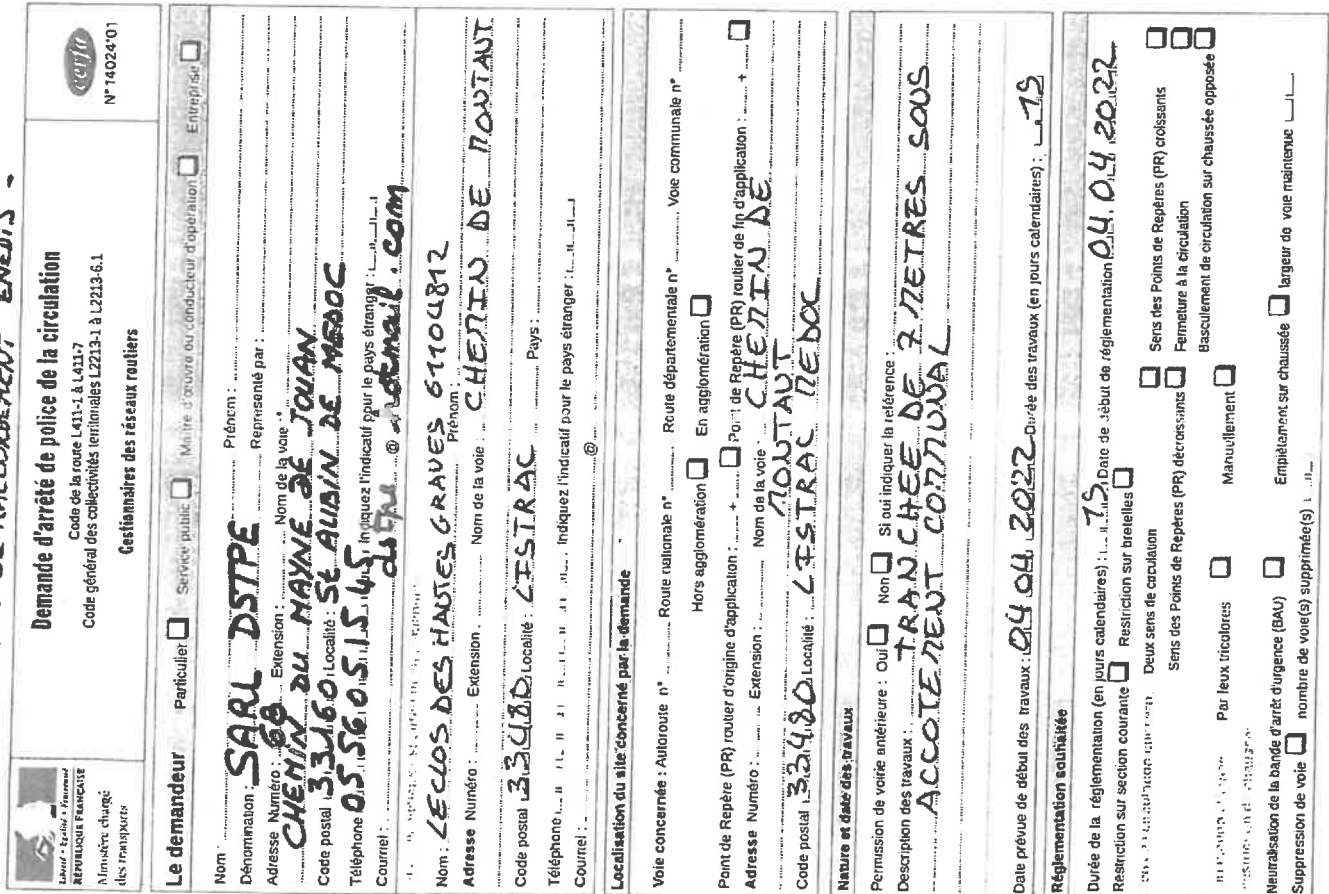 RACCORDEMENT ENEDIS -
Liberté • Égalité • Fraternité
RÉPUBLIQUE FRANÇAISE
Ministère chargé
des transports
Demande d'arrêté de police de la circulation
Code de la route L411-1 à L411-7
Code général des collectivités territoriales L2213-1 à L2213-6.1
Gestionnaires des réseaux routiers
cerfa
N° 14024*01
Le demandeur
Particulier Service public Maître d'œuvre ou conducteur d'opération Entreprise
Nom : Prénom :
Dénomination : SARL DSTPE Représenté par :
Adresse Numéro : 68 Extension : Nom de la voie :
CHEMIN DU MAYNE DE JOUAN
Code postal 33160 Localité : St AUBIN DE MEDOC
Téléphone 0556051545 Indiquez l'indicatif pour le pays étranger :
Courriel : dstpe @ hotmail.com
Nom : LECLOS DES HAUTES GRAVES 61104812
Prénom :
Adresse Numéro : Extension : Nom de la voie : CHEMIN DE MONTAUT
Code postal 33480 Localité : LISTRAC Pays :
Téléphone : Indiquez l'indicatif pour le pays étranger :
Courriel : @
Localisation du site concerné par la demande
Voie concernée : Autoroute n° Route nationale n° Route départementale n° Voie communale n°
Hors agglomération En agglomération
Point de Repère (PR) routier d'origine d'application : + Point de Repère (PR) routier de fin d'application : +
Adresse Numéro : Extension : Nom de la voie : CHEMIN DE
MONTAUT
Code postal 33480 Localité : LISTRAC MEDOC
Nature et date des travaux
Permission de voirie antérieure : Oui Non Si oui indiquer la référence :
Description des travaux : TRANCHEE DE 7 METRES SOUS
ACCOTEMENT COMMUNAL
Date prévue de début des travaux : 04 04 2022 Durée des travaux (en jours calendaires) : 15
Réglementation souhaitée
Durée de la réglementation (en jours calendaires) : 15 Date de début de réglementation 04.04.2022
Restriction sur section courante Restriction sur bretelles
Deux sens de circulation Sens des Points de Repères (PR) croissants
Sens des Points de Repères (PR) décroissants Fermeture à la circulation
Basculement de circulation sur chaussée opposée
Par feux tricolores Manuellement
Neutralisation de la bande d'arrêt d'urgence (BAU) Empiétement sur chaussée largeur de voie maintenue
Suppression de voie nombre de voie(s) supprimée(s)